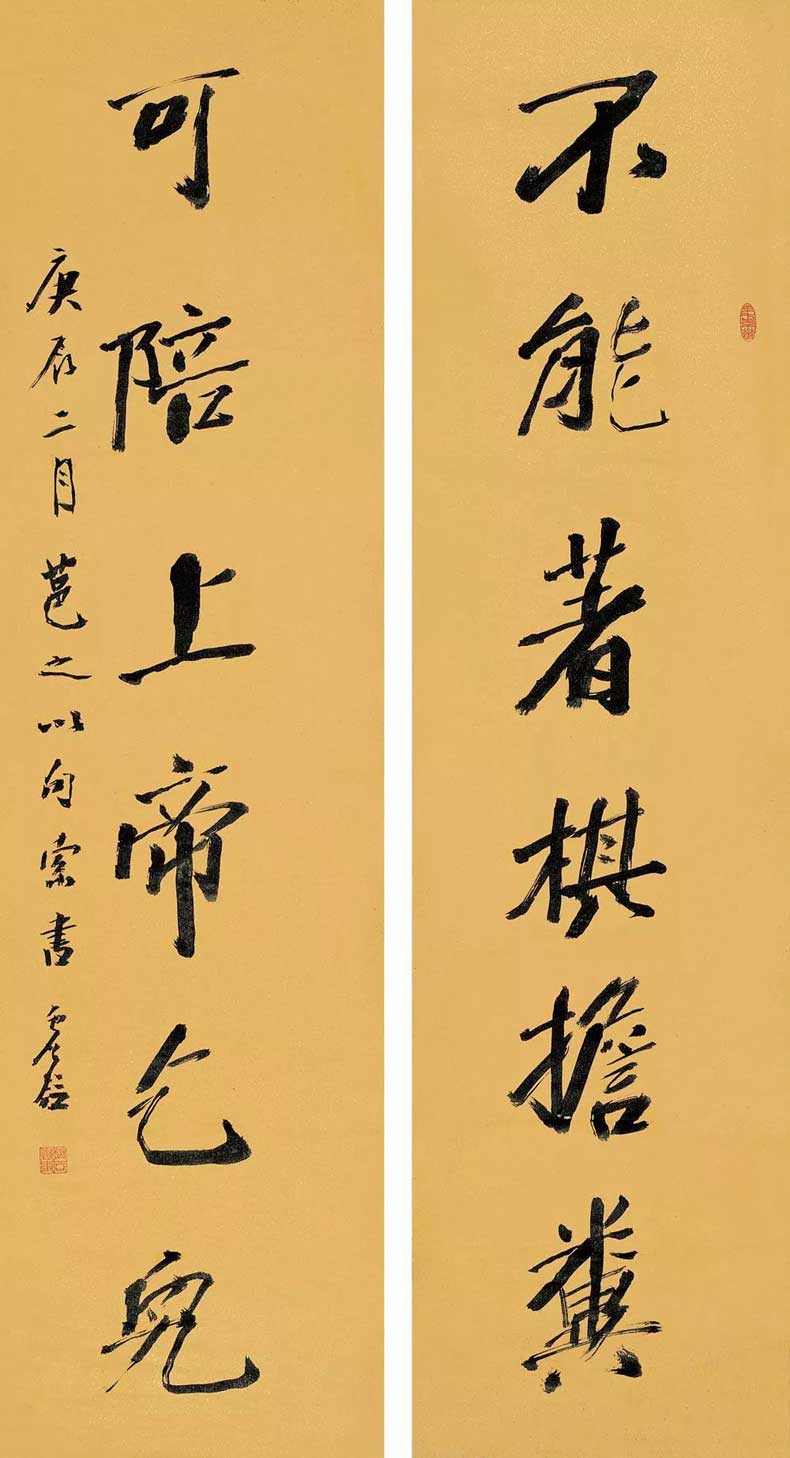 不能著棋擔糞
可陪上帝乞兒
庚辰二月芭之以句索書